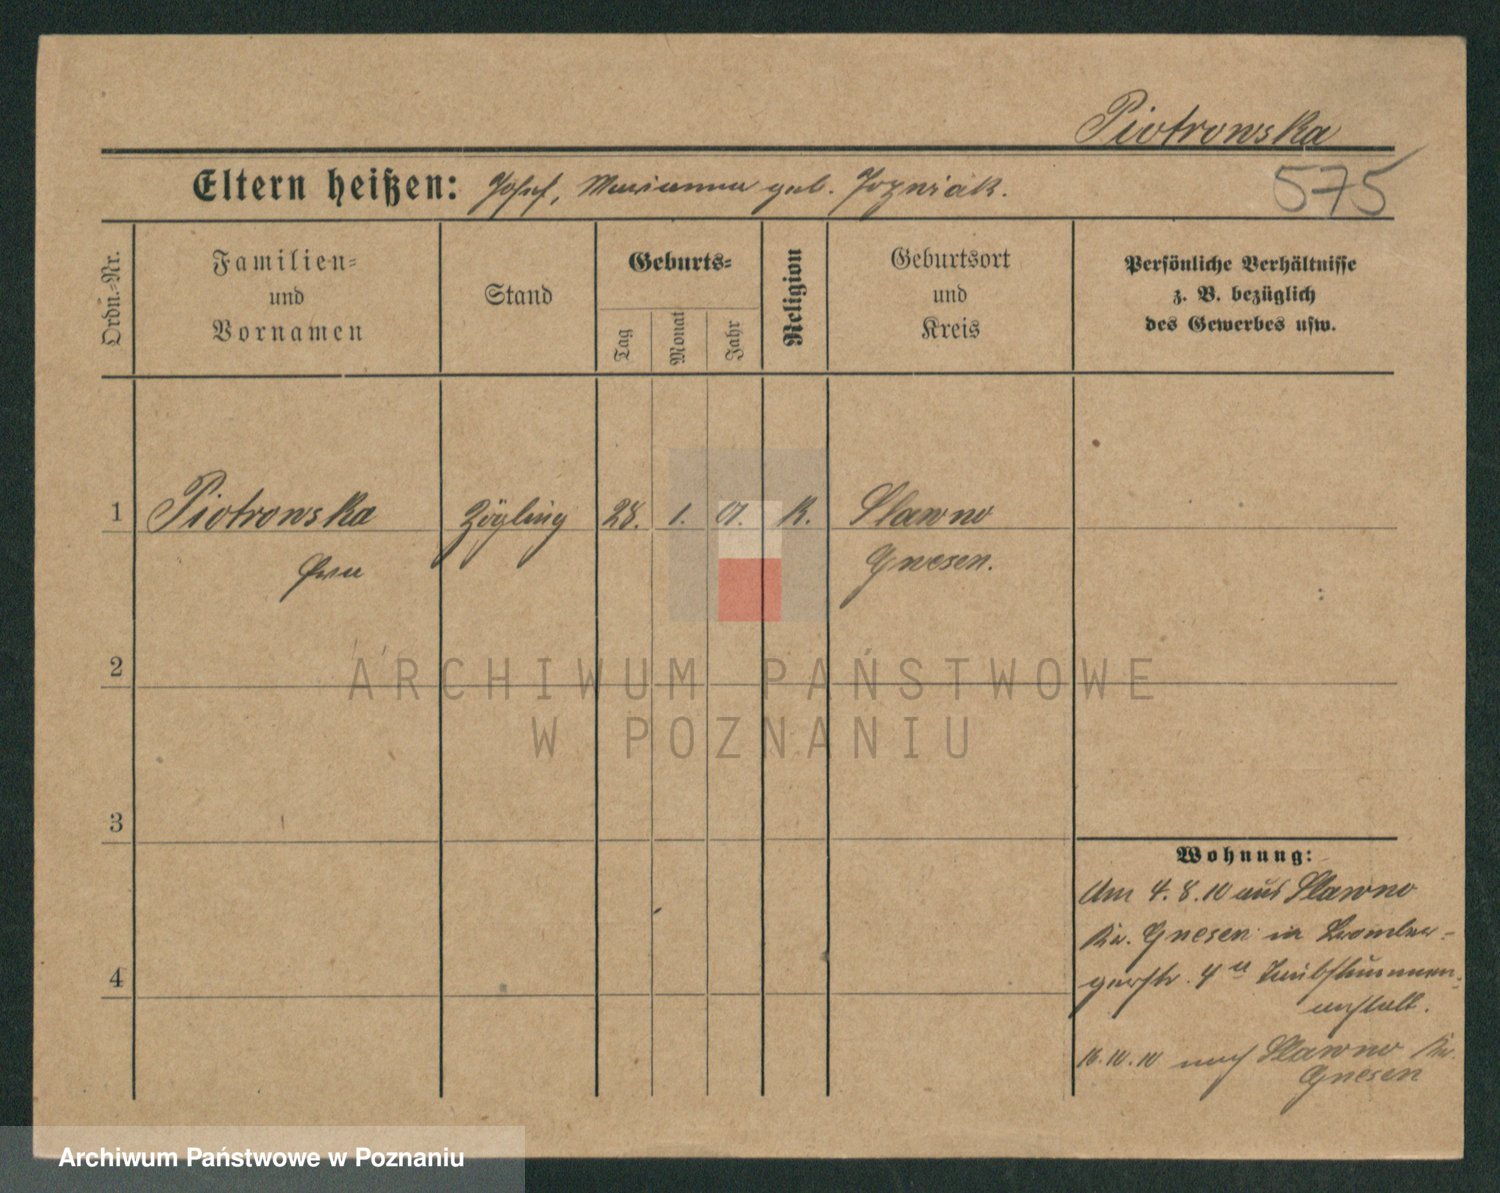 Piotrowska
Eltern heißen: Josef, Marianna geb. Jozwiak.
575
Ordn.-Nr.
Familien-
und
Vornamen
Stand
Geburts-
Tag
Monat
Jahr
Religion
Geburtsort
und
Kreis
Persönliche Verhältnisse
z. B. bezüglich
des Gewerbes usw.
1 Piotrowska Zögling 28. 1. 01. K. Slawno
Gnesen.
2
ARCHIWUM PAŃSTWOWE
W POZNANIU
3
Wohnung:
Am 4.8.10 aus Slawno
Kr. Gnesen in Bromber-
gerstr. 4a Taubstummen-
anstalt.
4
10.10 nach Slawno Kr.
Gnesen
Archiwum Państwowe w Poznaniu